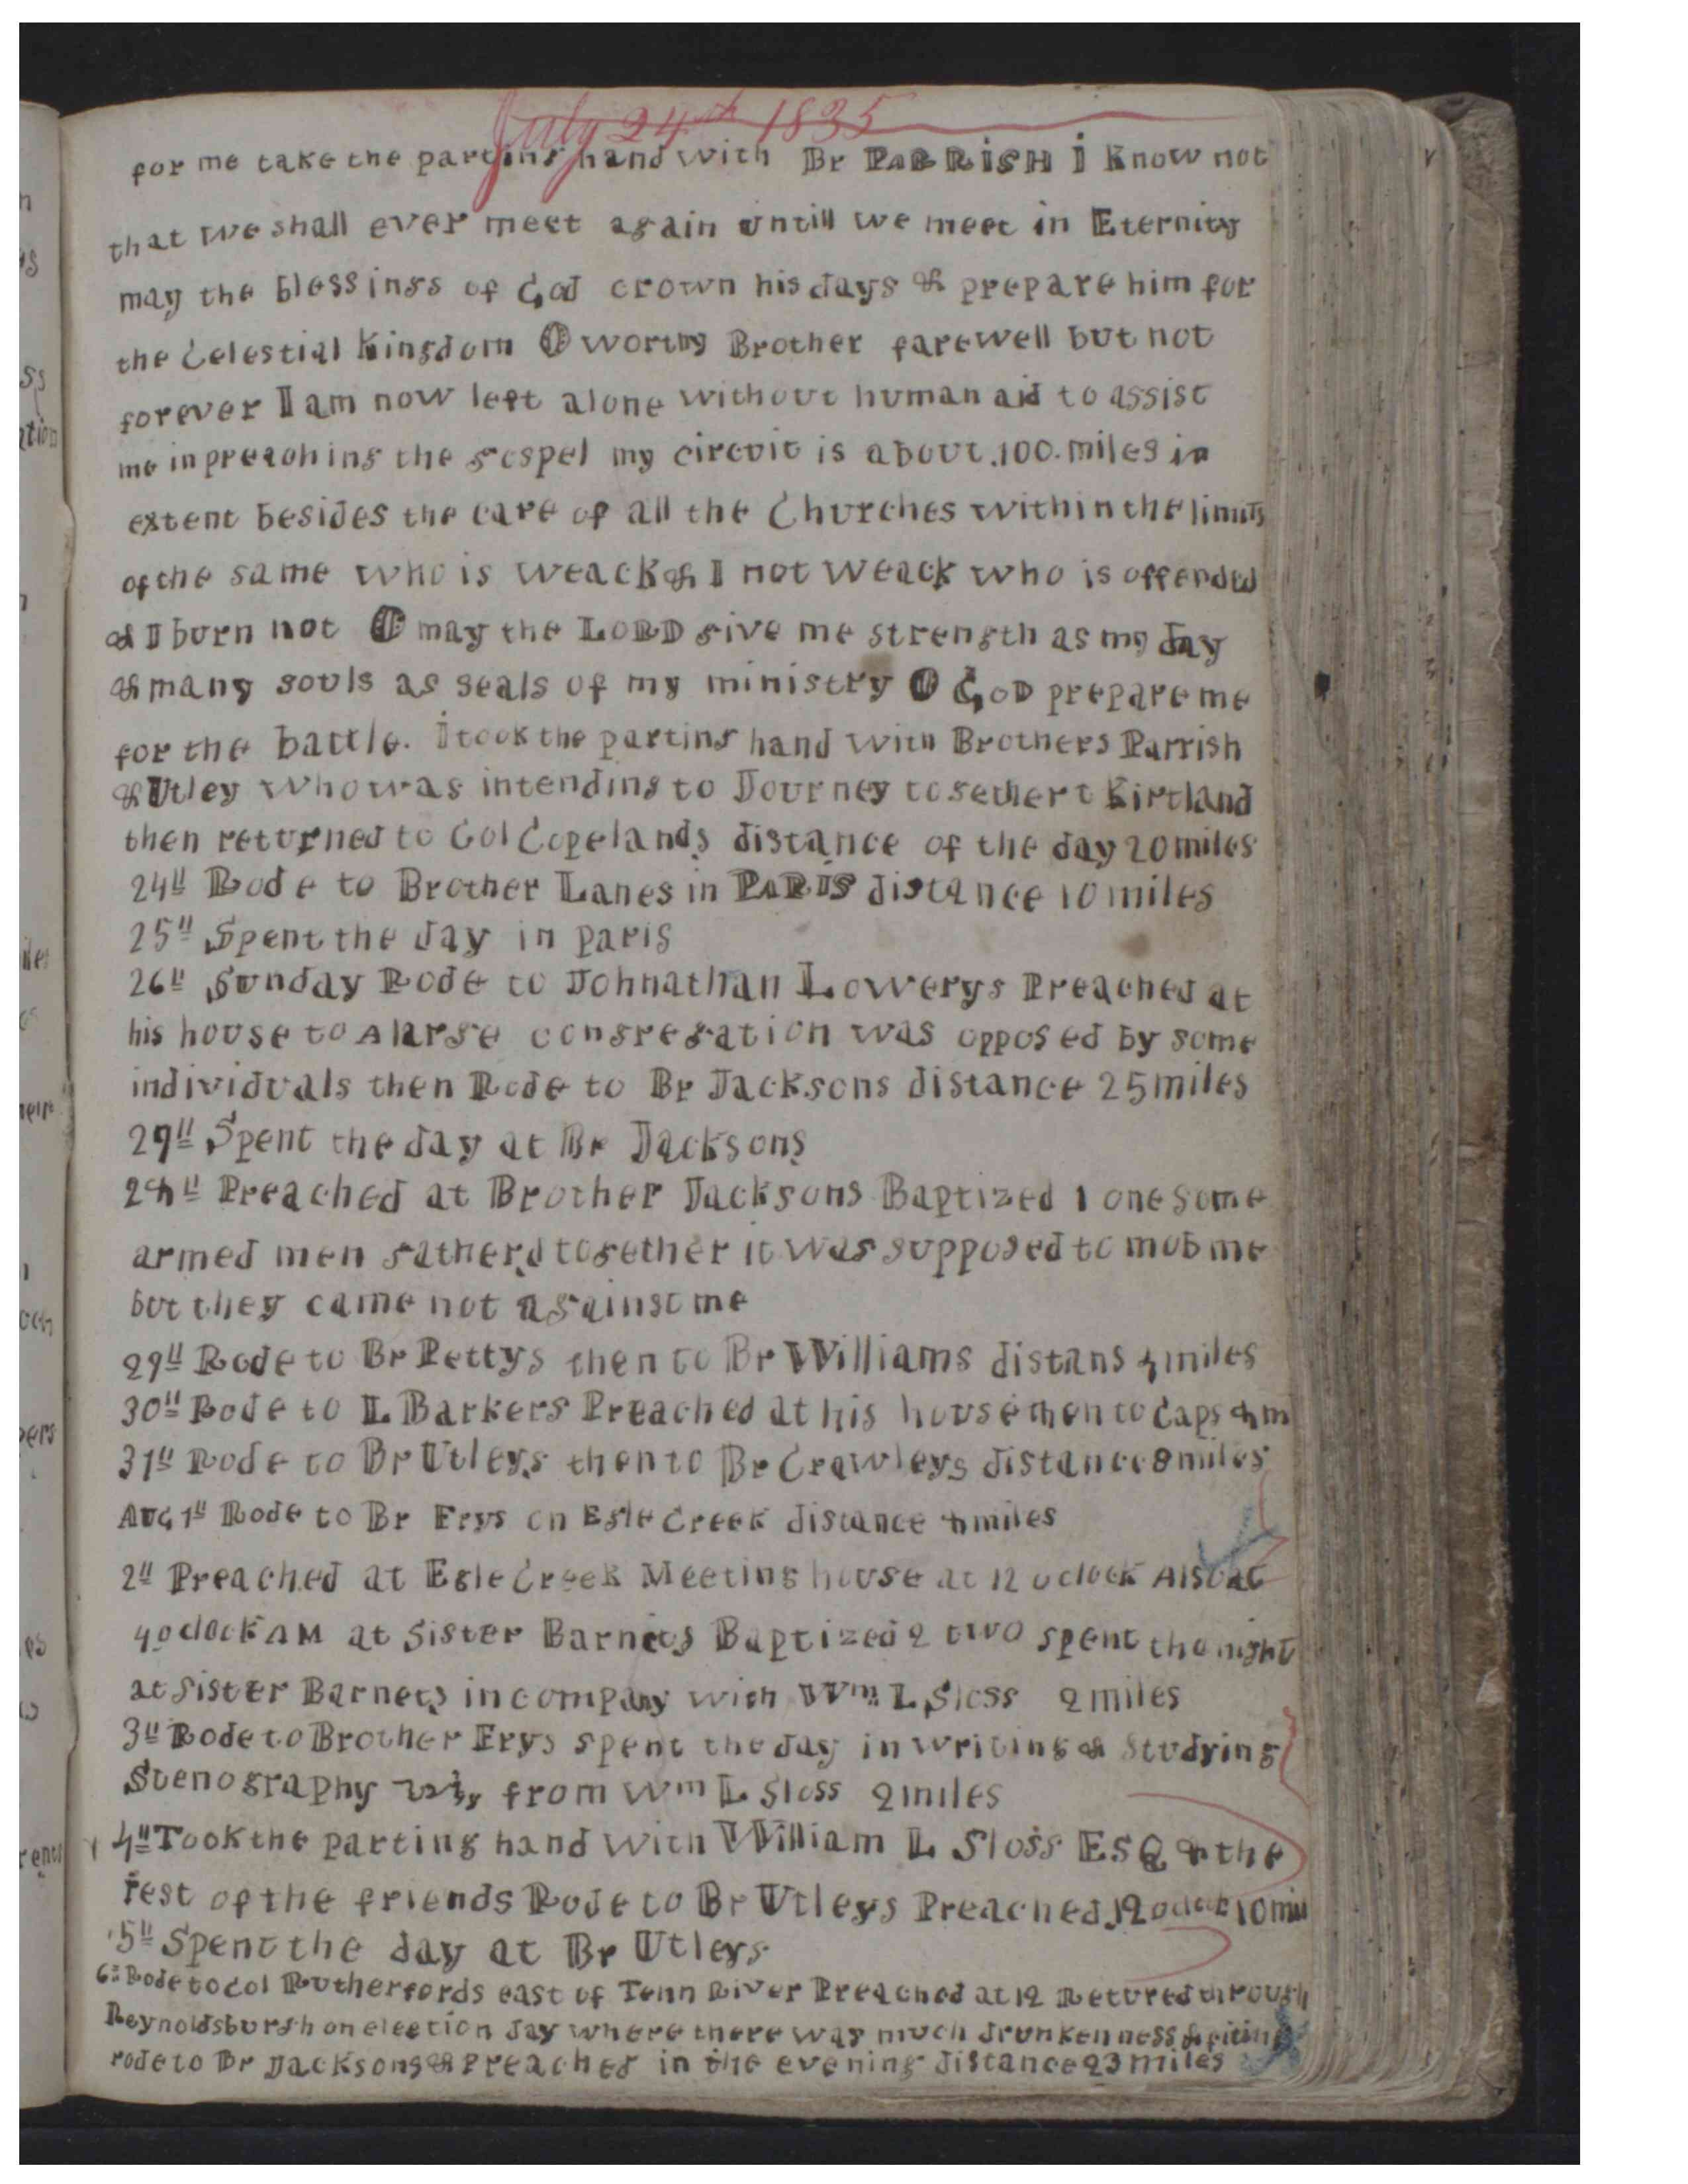 July 24th 1835
for me take the parting hand with Br PARRISH I Know not
that we shall ever meet again untill we meet in Eternity
may the blessings of God crown his days & prepare him for
the Celestial Kingdom O worthy Brother farewell but not
forever I am now left alone without human aid to assist
me in preaching the gospel my circuit is about .100. miles in
extent besides the care of all the Churches within the limits
of the same who is weack & I not weack who is offended
& I burn not O may the LORD give me strength as my day
& many souls as seals of my ministry O GOD prepare me
for the battle. I took the parting hand with Brothers Parrish
& Utley who was intending to Journey together t Kirtland
then returned to Col Copelands distance of the day 20 miles
24th Rode to Brother Lanes in PARIS distance 10 miles
25th Spent the day in paris
26th Sunday Rode to Johnathan Lowerys Preached at
his house to A large congregation was opposed by some
individuals then Rode to Br Jacksons distance 25 miles
27th Spent the day at Br Jacksons
28th Preached at Brother Jacksons Baptized 1 one some
armed men gatherd together it was supposed to mob me
but they came not against me
29th Rode to Br Pettys then to Br Williams distans 4 miles
30th Rode to L Barkers Preached at his house then to Caps 8 m
31st Rode to Br Utleys then to Br Crawleys distance 8 miles
AUG 1st Rode to Br Frys on Egle Creek distance 8 miles
2d Preached at Egle Creek Meeting house at 12 oclock Also at
4 oclock AM at Sister Barnets Baptized 2 two spent the night
at Sister Barnets in company with Wm L Sloss 2 miles
3d Rode to Brother Frys spent the day in writing & Studying
Stenography from Wm L Sloss 2 miles
4th Took the parting hand with William L Sloss ESQ & the
rest of the friends Rode to Br Utleys Preached 12 oclock 10 mil
5th Spent the day at Br Utleys
6th Rode to Col Rutherfords east of Tenn River Preached at 12 Retured through
Reynoldsburgh on election day where there was much drunkenness & fiting
rode to Br Jacksons & Preached in the evening distance 23 miles